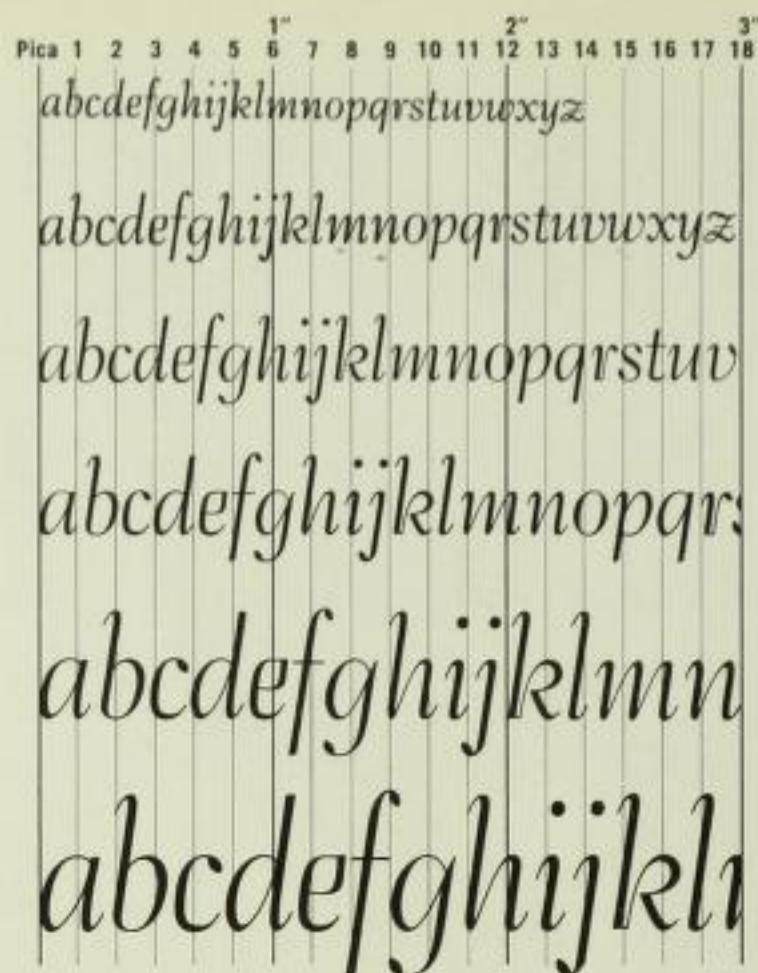 1" 2" 3"
Pica 1 2 3 4 5 6 7 8 9 10 11 12 13 14 15 16 17 18
abcdefghijklmnopqrstuvwxyz
abcdefghijklmnopqrstuvwxyz
abcdefghijklmnopqrstuv
abcdefghijklmnopqrs
abcdefghijklmn
abcdefghijkl